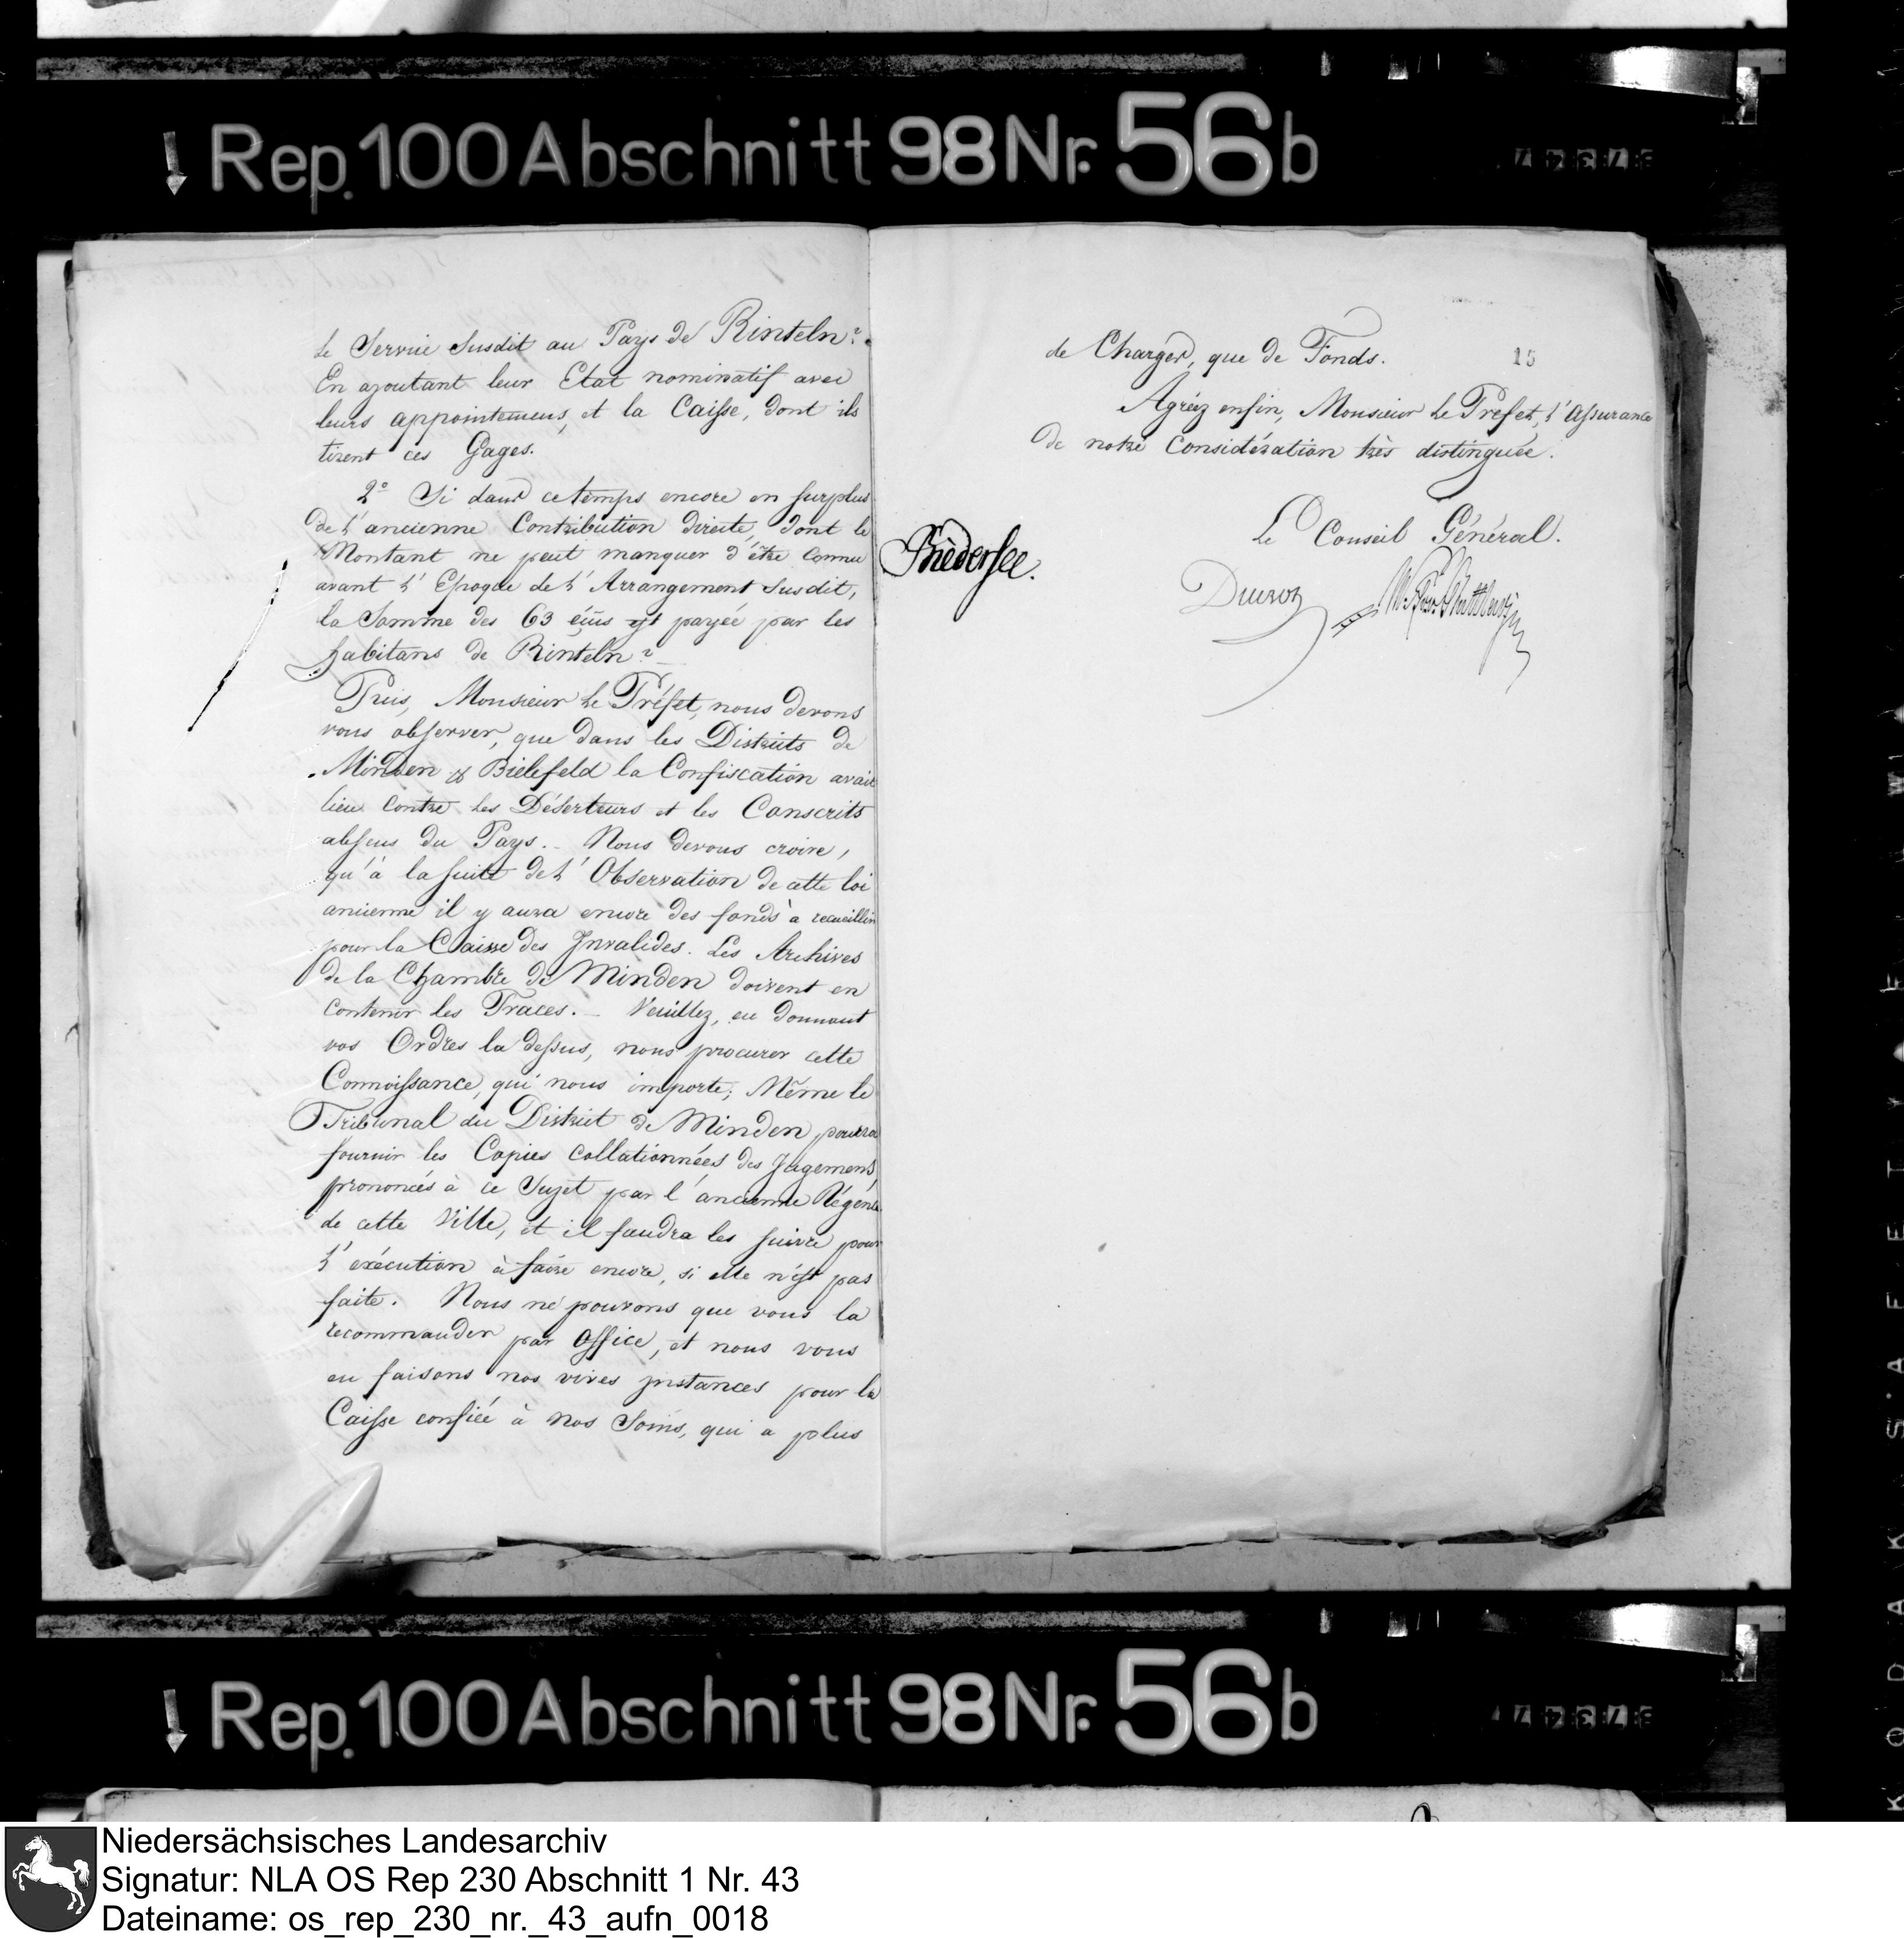 Rep. 100 Abschnitt 98 Nr. 56 b
le Service Susdit au Pays de Rinteln?
En ajoutant leur Etat nominatif avec
leurs appointemens, et la Caisse, dont ils
tirent ces Gages.
2° Si dans ce temps encore en surplus
de l'ancienne Contribution directe, dont le
Montant ne peut manquer d'être connu
avant l'Epoque de l'Arrangement susdit,
la Somme des 63 écus est payée par les
habitans de Rinteln?
Puis, Monsieur le Préfet, nous devons
vous observer, que dans les Districts de
Minden & Bielefeld la Confiscation avait
lieu contre les Déserteurs et les Conscrits
absens du Pays. - Nous devons croire,
qu'à la suite de l'Observation de cette loi
ancienne il y aura encore des fonds à recueillir
pour la Caisse des Invalides. Les Archives
de la Chambre de Minden doivent en
contenir les Traces. - Veuillez, en donnant
vos Ordres la dessus, nous procurer cette
Connoissance, qui nous importe; Même le
Tribunal du District de Minden pourra
fournir les Copies collationnées des Jugemens,
prononcés à ce Sujet par l'ancienne Régence
de cette Ville, et il faudra les suivre pour
l'exécution à faire encore, si elle n'est pas
faite. Nous ne pouvons que vous la
recommander par Office, et nous vous
en faisons nos vives instances pour la
Caisse confiée à nos Soins, qui a plus
15
de Charges, que de Fonds.
Agréez enfin, Monsieur le Préfet, l'assurance
de notre Considération très distinguée.
Le Conseil Général.
Duuroy
Rep. 100 Abschnitt 98 Nr. 56 b
Niedersächsisches Landesarchiv
Signatur: NLA OS Rep 230 Abschnitt 1 Nr. 43
Dateiname: os_rep_230_nr._43_aufn_0018